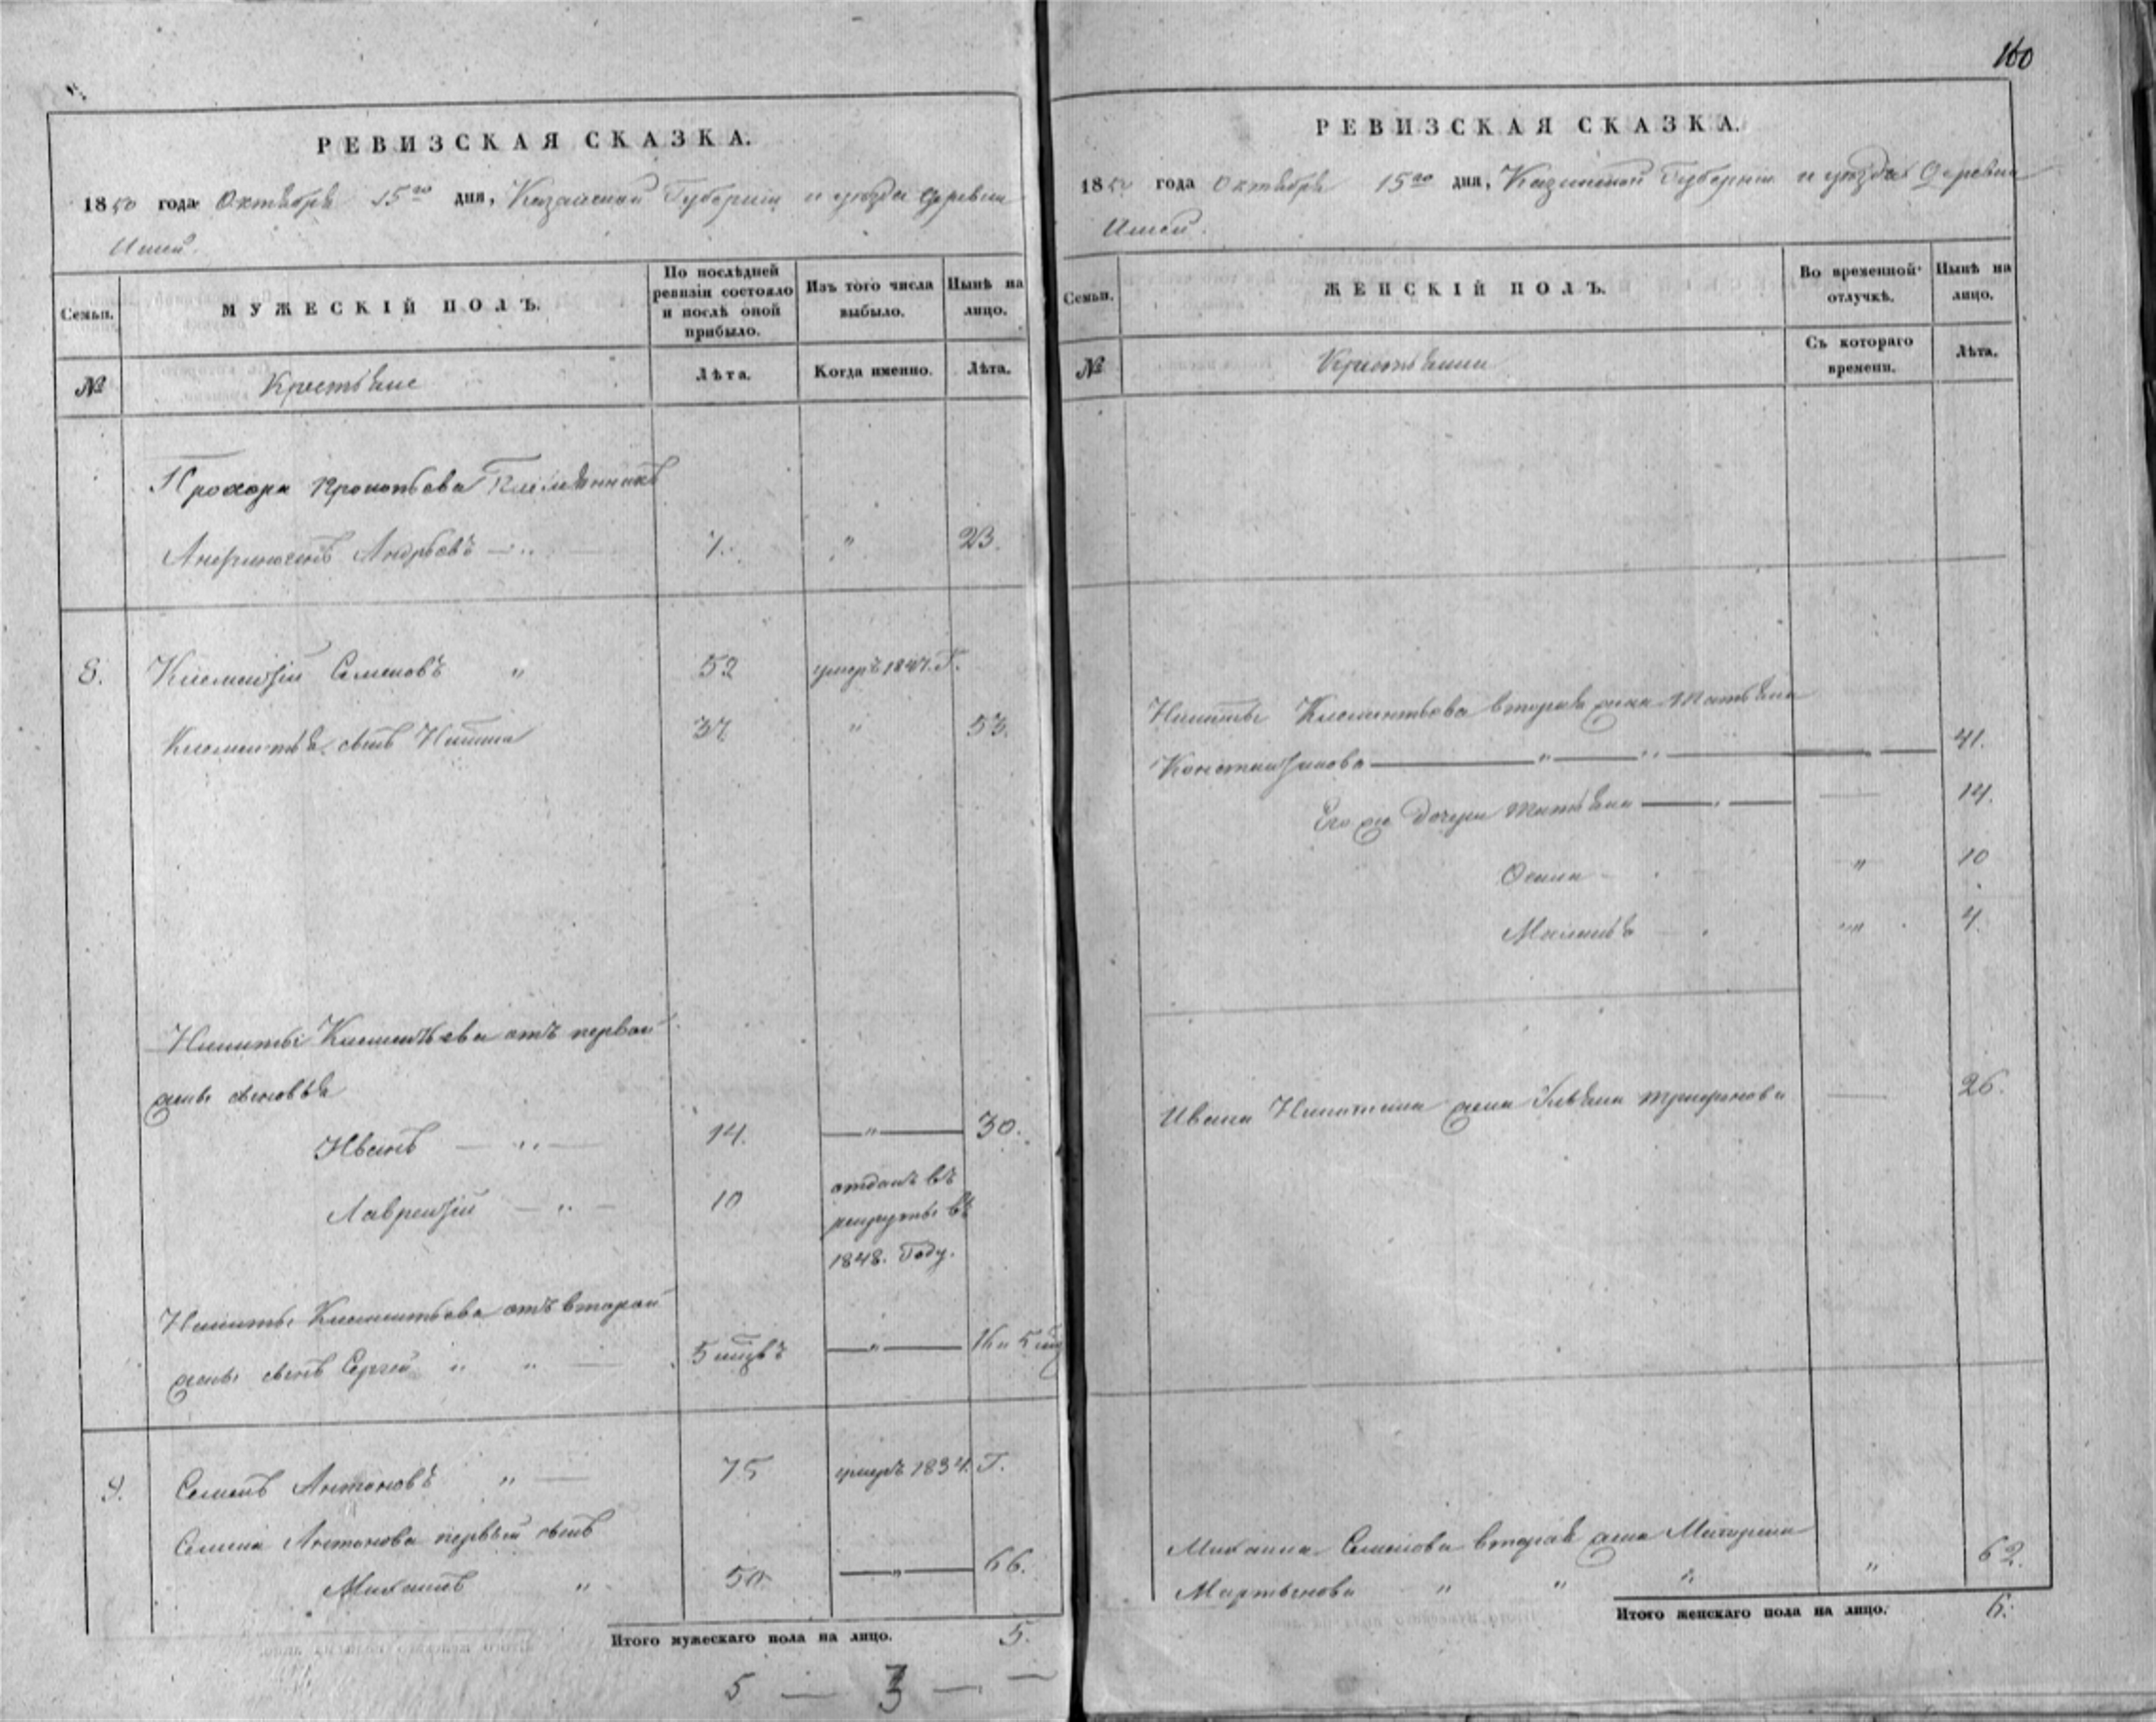 160
РЕВИЗСКАЯ СКАЗКА.
1850 года Октября 15го дня, Казанской Губернiи и уѣзда Деревни
Ишей.
Семьи.
МУЖЕСКIЙ ПОЛЪ.
По послѣдней ревизiи состояло и послѣ оной прибыло.
Изъ того числа выбыло.
Нынѣ на лицо.
№
Крестьяне
Лѣта.
Когда именно.
Лѣта.
Прохора Прокопьева Племянникъ
Андрѣевъ 7. " 23.
8. Климентiй Семеновъ " 52 умеръ 1847. Г.
Климентья сынъ Никита 37 " 53.
Никиты Климентьева отъ первой
жены сыновья
Иванъ — " — 14. — " — 30.
Лаврентiй — " — 10 отданъ въ
рекруты въ
1848. Году.
Никиты Климентьева отъ второй
жены сынъ Сергей " " — 5 мцвъ — " — 16 и 5 мц
9. Семенъ Антоновъ " — 75 умеръ 1834. Г.
Семена Антонова первый сынъ
Михаилъ " 50 — " — 66.
Итого мужескаго пола на лицо. 5.
5 — 3 — —
РЕВИЗСКАЯ СКАЗКА.
1850 года Октября 15го дня, Казанской Губернiи и уѣзда Деревни
Ишей.
Семьи.
ЖЕНСКIЙ ПОЛЪ.
Во временной отлучкѣ.
Нынѣ на лицо.
№
Крестьяне
Съ котораго времени.
Лѣта.
Никиты Климентьева вторая жена Татьяна
Константинова — " — " — 41.
Его же Дочери Татьяна — " — 14.
" 10
Маланья — " 4.
Ивана Никитина жена Ульяна Трифонова — 26.
Михаила Семенова вторая жена
Мартынова " " " " 62.
Итого женскаго пола на лицо. 6.